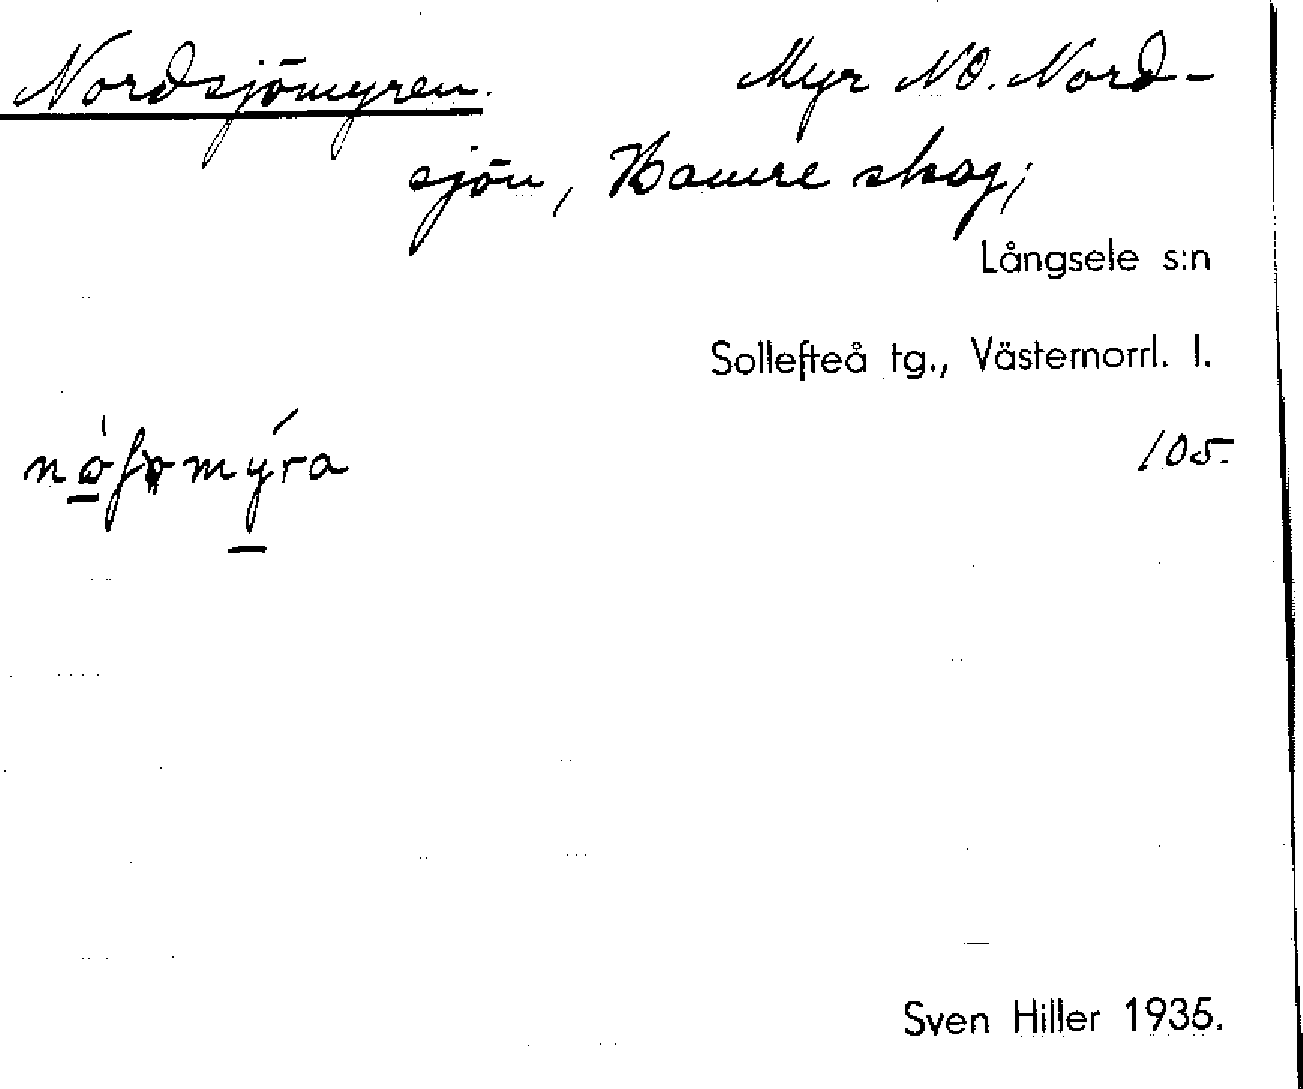 Nordsjömyren. Myr NO. Nord-
sjön, Hamre skog;
Långsele s:n
Sollefteå tg., Västernorrl. l.
105.
Sven Hiller 1935.